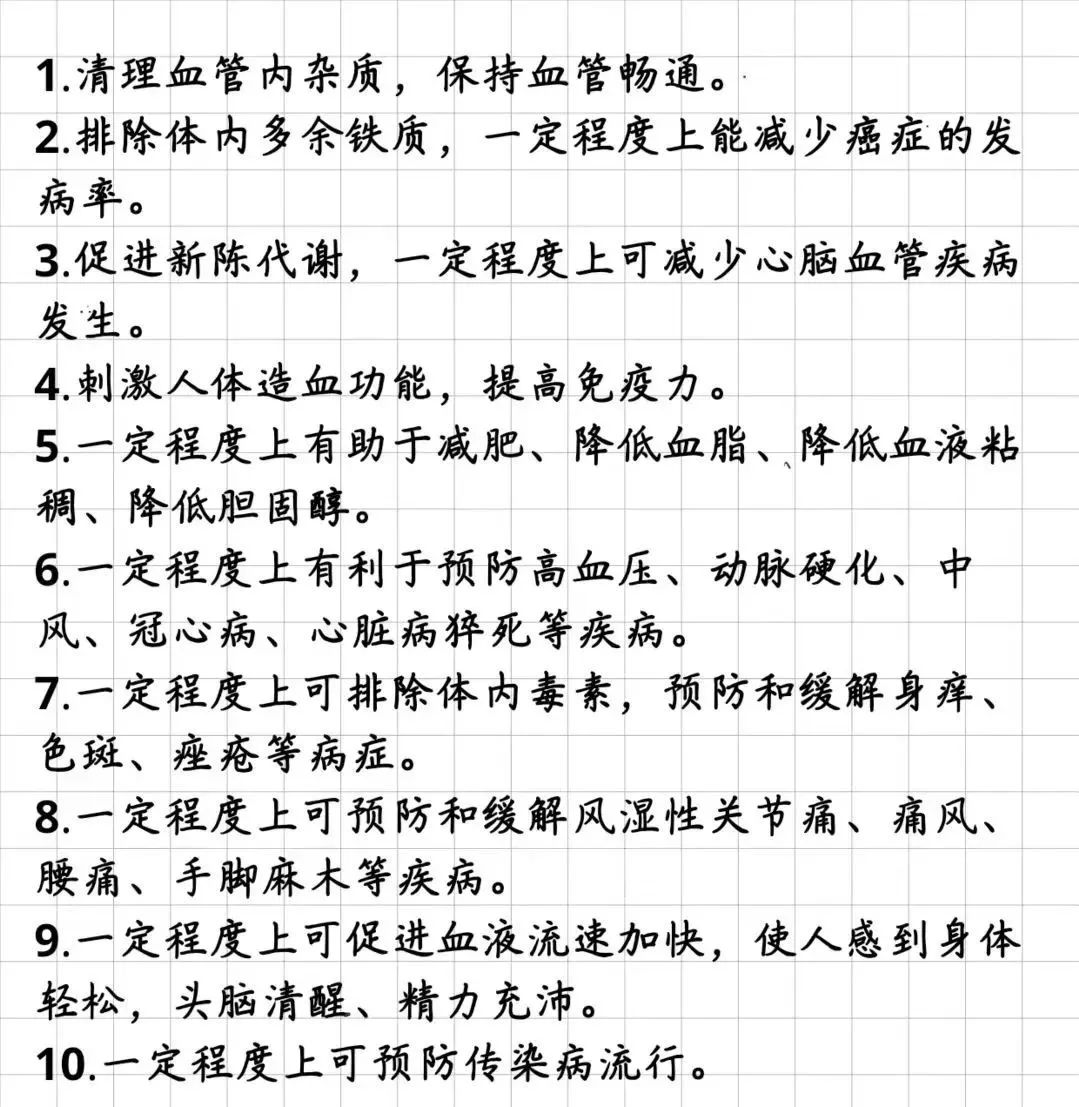 1.清理血管内杂质，保持血管畅通。
2.排除体内多余铁质，一定程度上能减少癌症的发
病率。
3.促进新陈代谢，一定程度上可减少心脑血管疾病
发生。
4.刺激人体造血功能，提高免疫力。
5.一定程度上有助于减肥、降低血脂、降低血液粘
稠、降低胆固醇。
6.一定程度上有利于预防高血压、动脉硬化、中
风、冠心病、心脏病猝死等疾病。
7.一定程度上可排除体内毒素，预防和缓解身痒、
色斑、痤疮等病症。
8.一定程度上可预防和缓解风湿性关节痛、痛风、
腰痛、手脚麻木等疾病。
9.一定程度上可促进血液流速加快，使人感到身体
轻松，头脑清醒、精力充沛。
10.一定程度上可预防传染病流行。